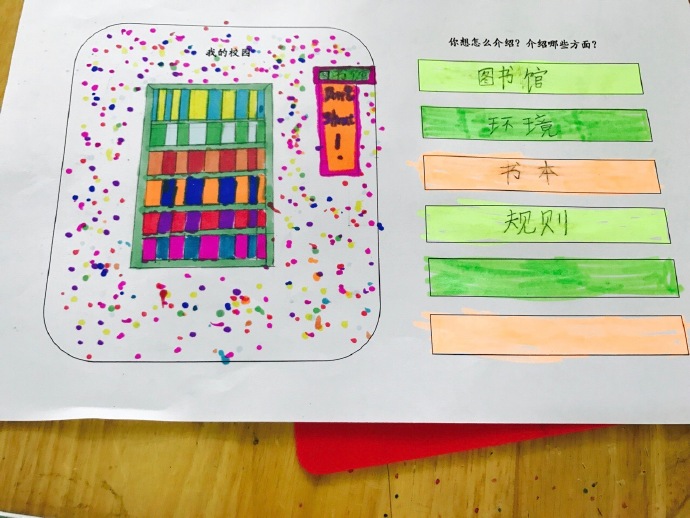 我的校园
图书馆
Don't
Shout
!
你想怎么介绍？介绍哪些方面？
图书馆
环境
书本
规则